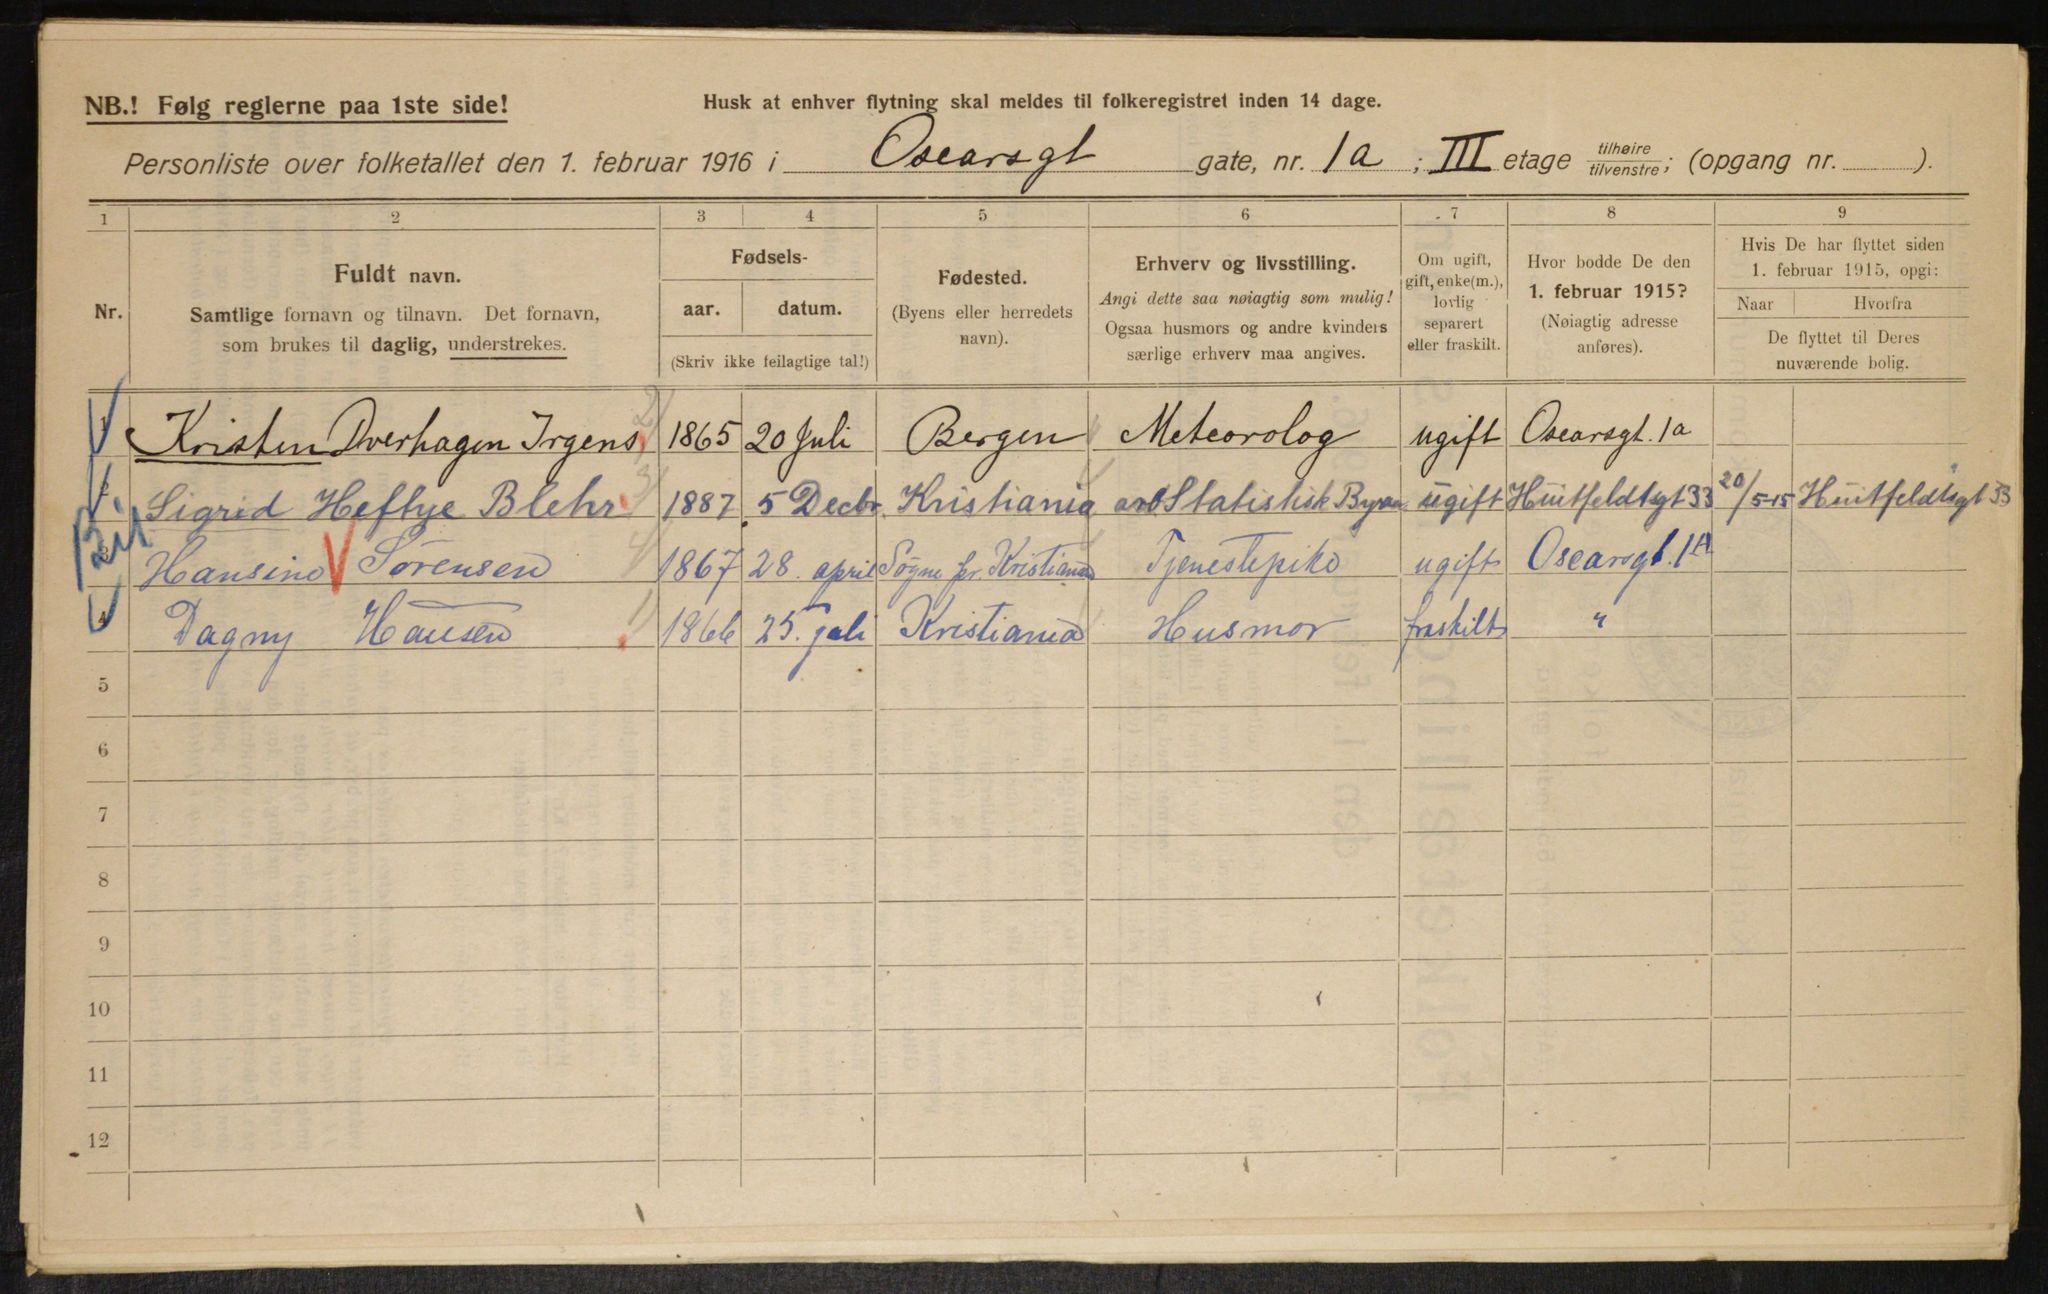 NB.! Følg reglerne paa 1ste side!
Husk at enhver flytning skal meldes til folkeregistret inden 14 dage.
Personliste over folketallet den 1. februar 1916 i Oscarsgt gate, nr. 1a; III etage tilhøire/tilvenstre; (opgang nr. ).
1 2 3 4 5 6 7 8 9
Nr.
Fuldt navn.
Samtlige fornavn og tilnavn. Det fornavn,
som brukes til daglig, understrekes.
Fødsels-
aar. datum.
(Skriv ikke feilagtige tal!)
Fødested.
(Byens eller herredets
navn).
Erhverv og livsstilling.
Angi dette saa nøiagtig som mulig!
Ogsaa husmors og andre kvinders
særlige erhverv maa angives.
Om ugift,
gift, enke(m.),
lovlig
separert
eller fraskilt.
Hvor bodde De den
1. februar 1915?
(Nøiagtig adresse
anføres).
Hvis De har flyttet siden
1. februar 1915, opgi:
Naar Hvorfra
De flyttet til Deres
nuværende bolig.
Kristen Dverhagen Irgens 1865 20 Juli Bergen Meteorolog ugift Oscarsgt. 1a
Sigrid Heftye Blehr 1887 5 Decbr. Kristiania Statistisk Byraa ugift Huitfeldtsgt 33 20/5-15 Huitfeldtsgt 33
Hansine Sørensen 1867 28. april Sogne pr. Kristiania Tjenestepike ugift Oscarsgt. 1A
Dagny Hansen 1866 25. juli Kristiania Husmor fraskilt "
5
6
7
8
9
10
11
12